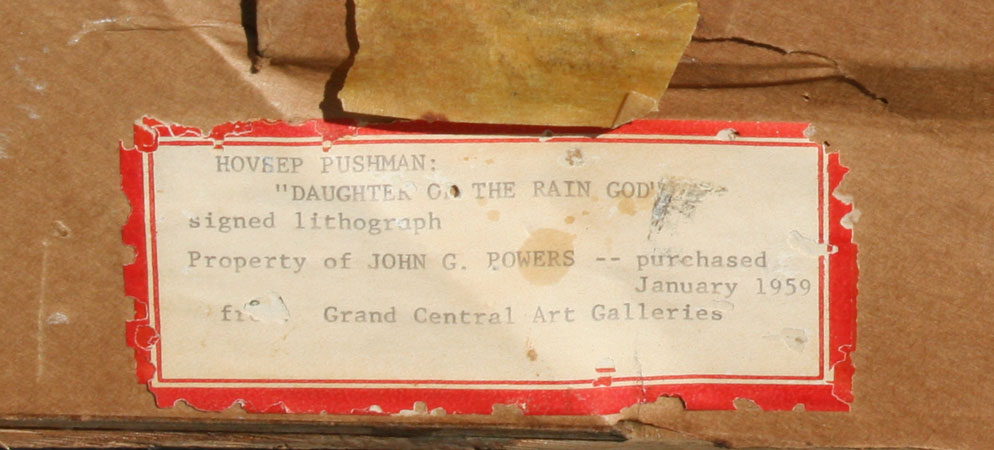 HOVSEP PUSHMAN:
"DAUGHTER OF THE RAIN GOD"
signed lithograph
Property of JOHN G. POWERS -- purchased
January 1959
from Grand Central Art Galleries